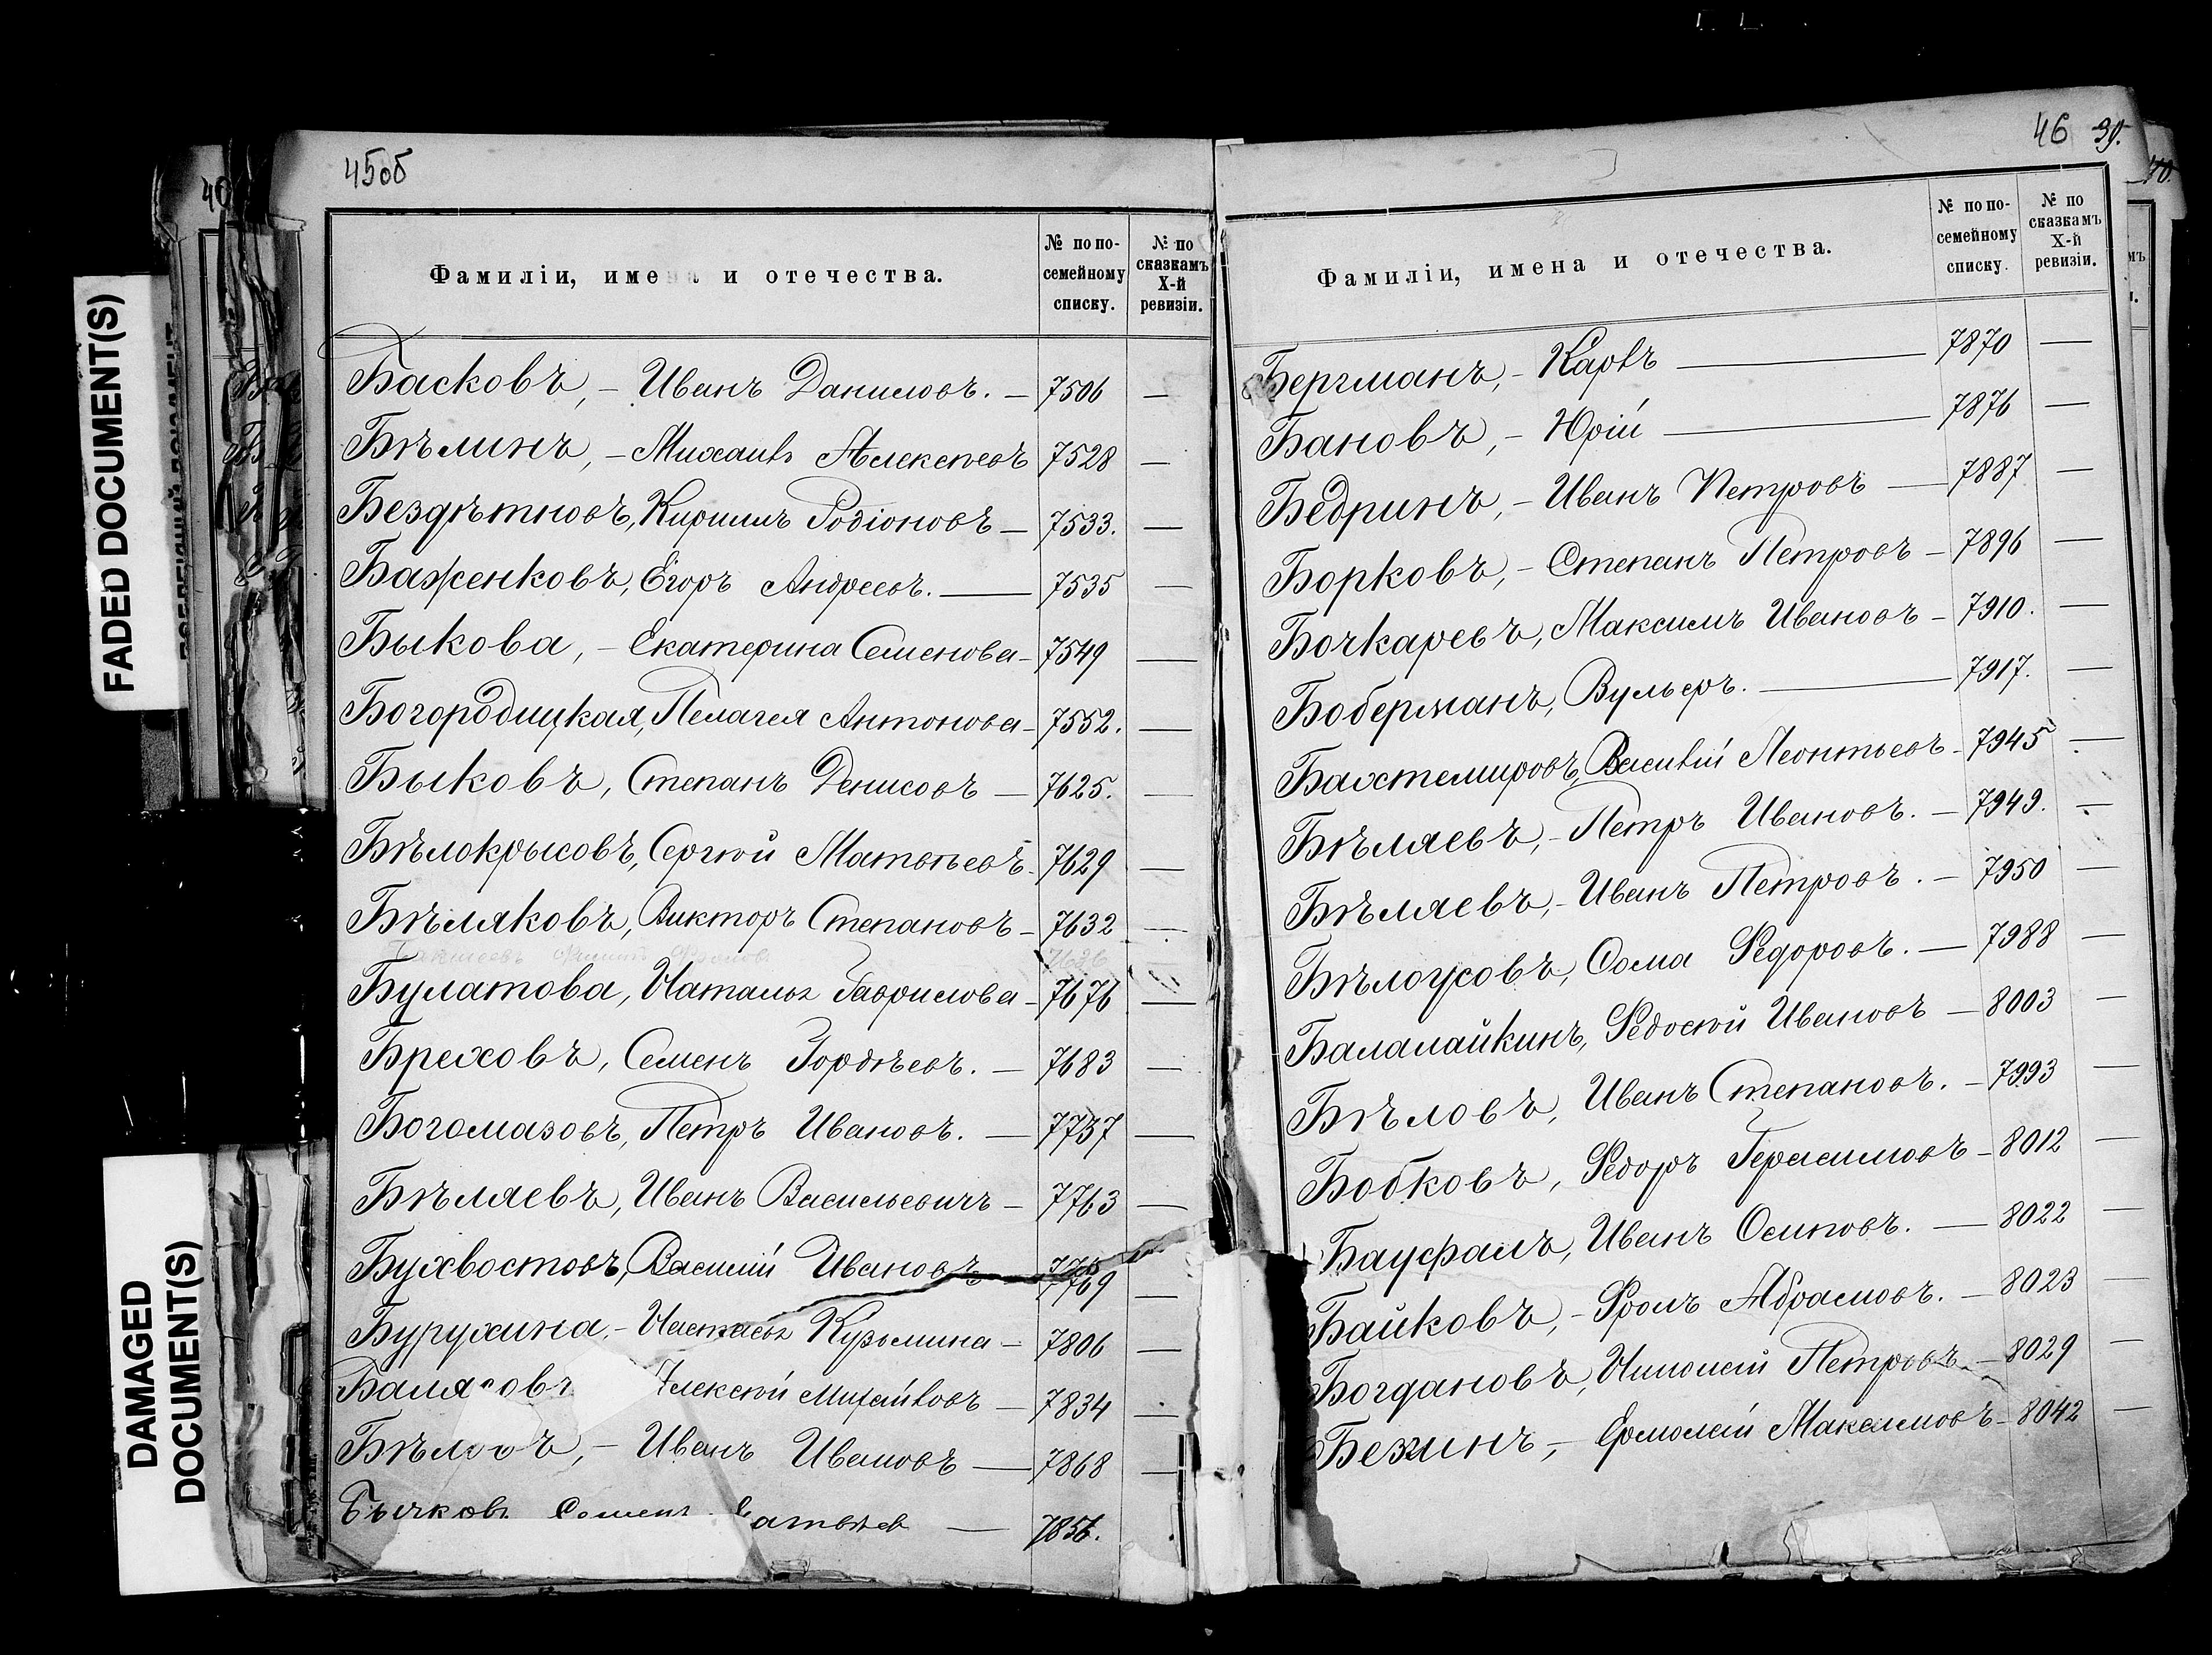 45об
Фамиліи, имена и отечества.
№ по по-
семейному
списку.
№ по
сказкамъ
X-й
ревизіи.
Басковъ, - Иванъ Даниловъ. — 7506 —
Бѣлинъ, - Михаилъ Алексѣевъ 7528 —
Бездѣтновъ, Кириллъ Родіоновъ — 7533. —
Баженковъ, Егоръ Андреевъ. — 7535 —
Быкова, - Екатерина Семенова - 7549 —
Богородицкая, Пелагея Антонова - 7552. —
Быковъ, Степанъ Денисовъ — 7625. —
Бѣлокрысовъ, Сергѣй Матвѣевъ - 7629 —
Бѣляковъ, Викторъ Степановъ - 7632 —
Булатова, Наталья Гаврилова - 7676 —
Бреховъ, Семенъ Гордѣевъ. — 7683 —
Богомазовъ, Петръ Ивановъ. — 7737 —
Бѣляевъ, Иванъ Васильевичъ — 7763 —
Бухвостовъ, Василій Ивановъ — 7769 —
Бурухина, - Настасья Кузьмина — 7806 —
Алексѣй Михайловъ — 7834 —
Бѣловъ, - Иванъ Ивановъ — 7868 —
Бычковъ Семенъ — 7856.
46 39.
Фамиліи, имена и отечества.
№ по по-
семейному
списку.
№ по
сказкамъ
X-й
ревизіи.
Бергманъ, - Карлъ — 7870 —
Бановъ, - Юрій — 7876 —
Бедринъ, - Иванъ Петровъ — 7887 —
Борковъ, - Степанъ Петровъ — 7896 —
Бочкаревъ, Максимъ Ивановъ - 7910. —
Боберманъ, Вульфъ. — 7917. —
Бахтемировъ, Василій Леонтьевъ - 7945 —
Бѣляевъ, - Петръ Ивановъ. — 7949. —
Бѣляевъ, - Иванъ Петровъ. — 7950 —
Бѣлоусовъ, Фома Федоровъ. — 7988 —
Балалайкинъ, Федосѣй Ивановъ — 8003 —
Бѣловъ, Иванъ Степановъ. — 7993 —
Бобковъ, Федоръ Герасимовъ — 8012 —
Бауфалъ, Иванъ Осиповъ. — 8022 —
Байковъ, - Фролъ Абрамовъ. — 8023 —
Богдановъ, Петровъ. — 8029 —
Безинъ, - Ермолай Максимовъ - 8042 —
FADED DOCUMENT(S)
DAMAGED
DOCUMENT(S)